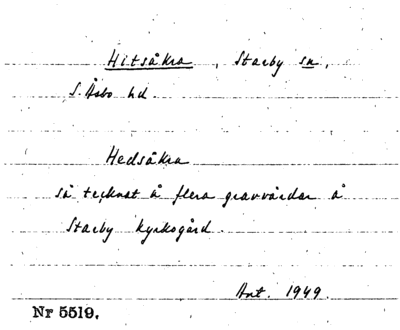 Hitsåkra, Starby sn,
S. Åsbo hd.
Hedsåkra
så tecknat å flera gravvårdar å
Starby kyrkogård.
Ant. 1949.
Nr 5519.